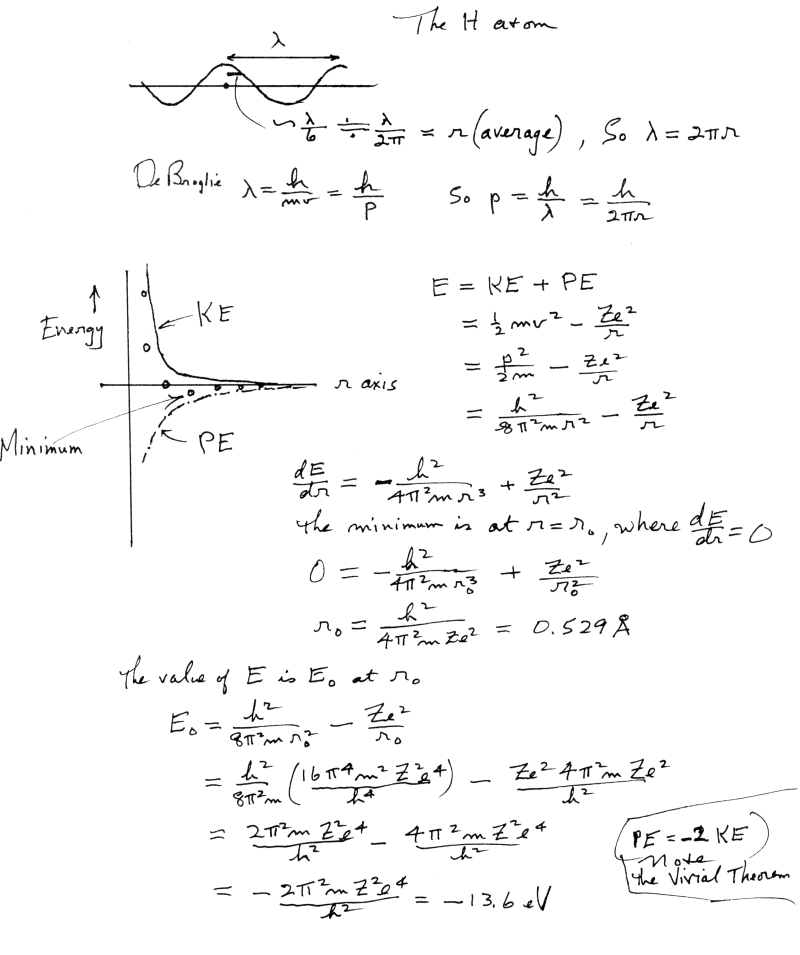 The H atom
λ
~ λ/6 ÷ λ/2π = r (average), So λ = 2πr
De Broglie λ = h/mv = h/p So p = h/λ = h/2πr
E = KE + PE
= ½ mv² − Ze²/r
= p²/2m − Ze²/r
= h²/8π²mr² − Ze²/r
↑
Energy
KE
r axis
Minimum
PE
dE/dr = − h²/4π²mr³ + Ze²/r²
the minimum is at r = r₀, where dE/dr = 0
0 = − h²/4π²mr₀³ + Ze²/r₀²
r₀ = h²/4π²mZe² = 0.529 Å
The value of E is E₀ at r₀
E₀ = h²/8π²mr₀² − Ze²/r₀
= h²/8π²m (16π⁴m²Z²e⁴/h⁴) − Ze² 4π²m Ze²/h²
= 2π²mZ²e⁴/h² − 4π²mZ²e⁴/h²
= − 2π²mZ²e⁴/h² = −13.6 eV
PE = −2 KE
Note
the Virial Theorem